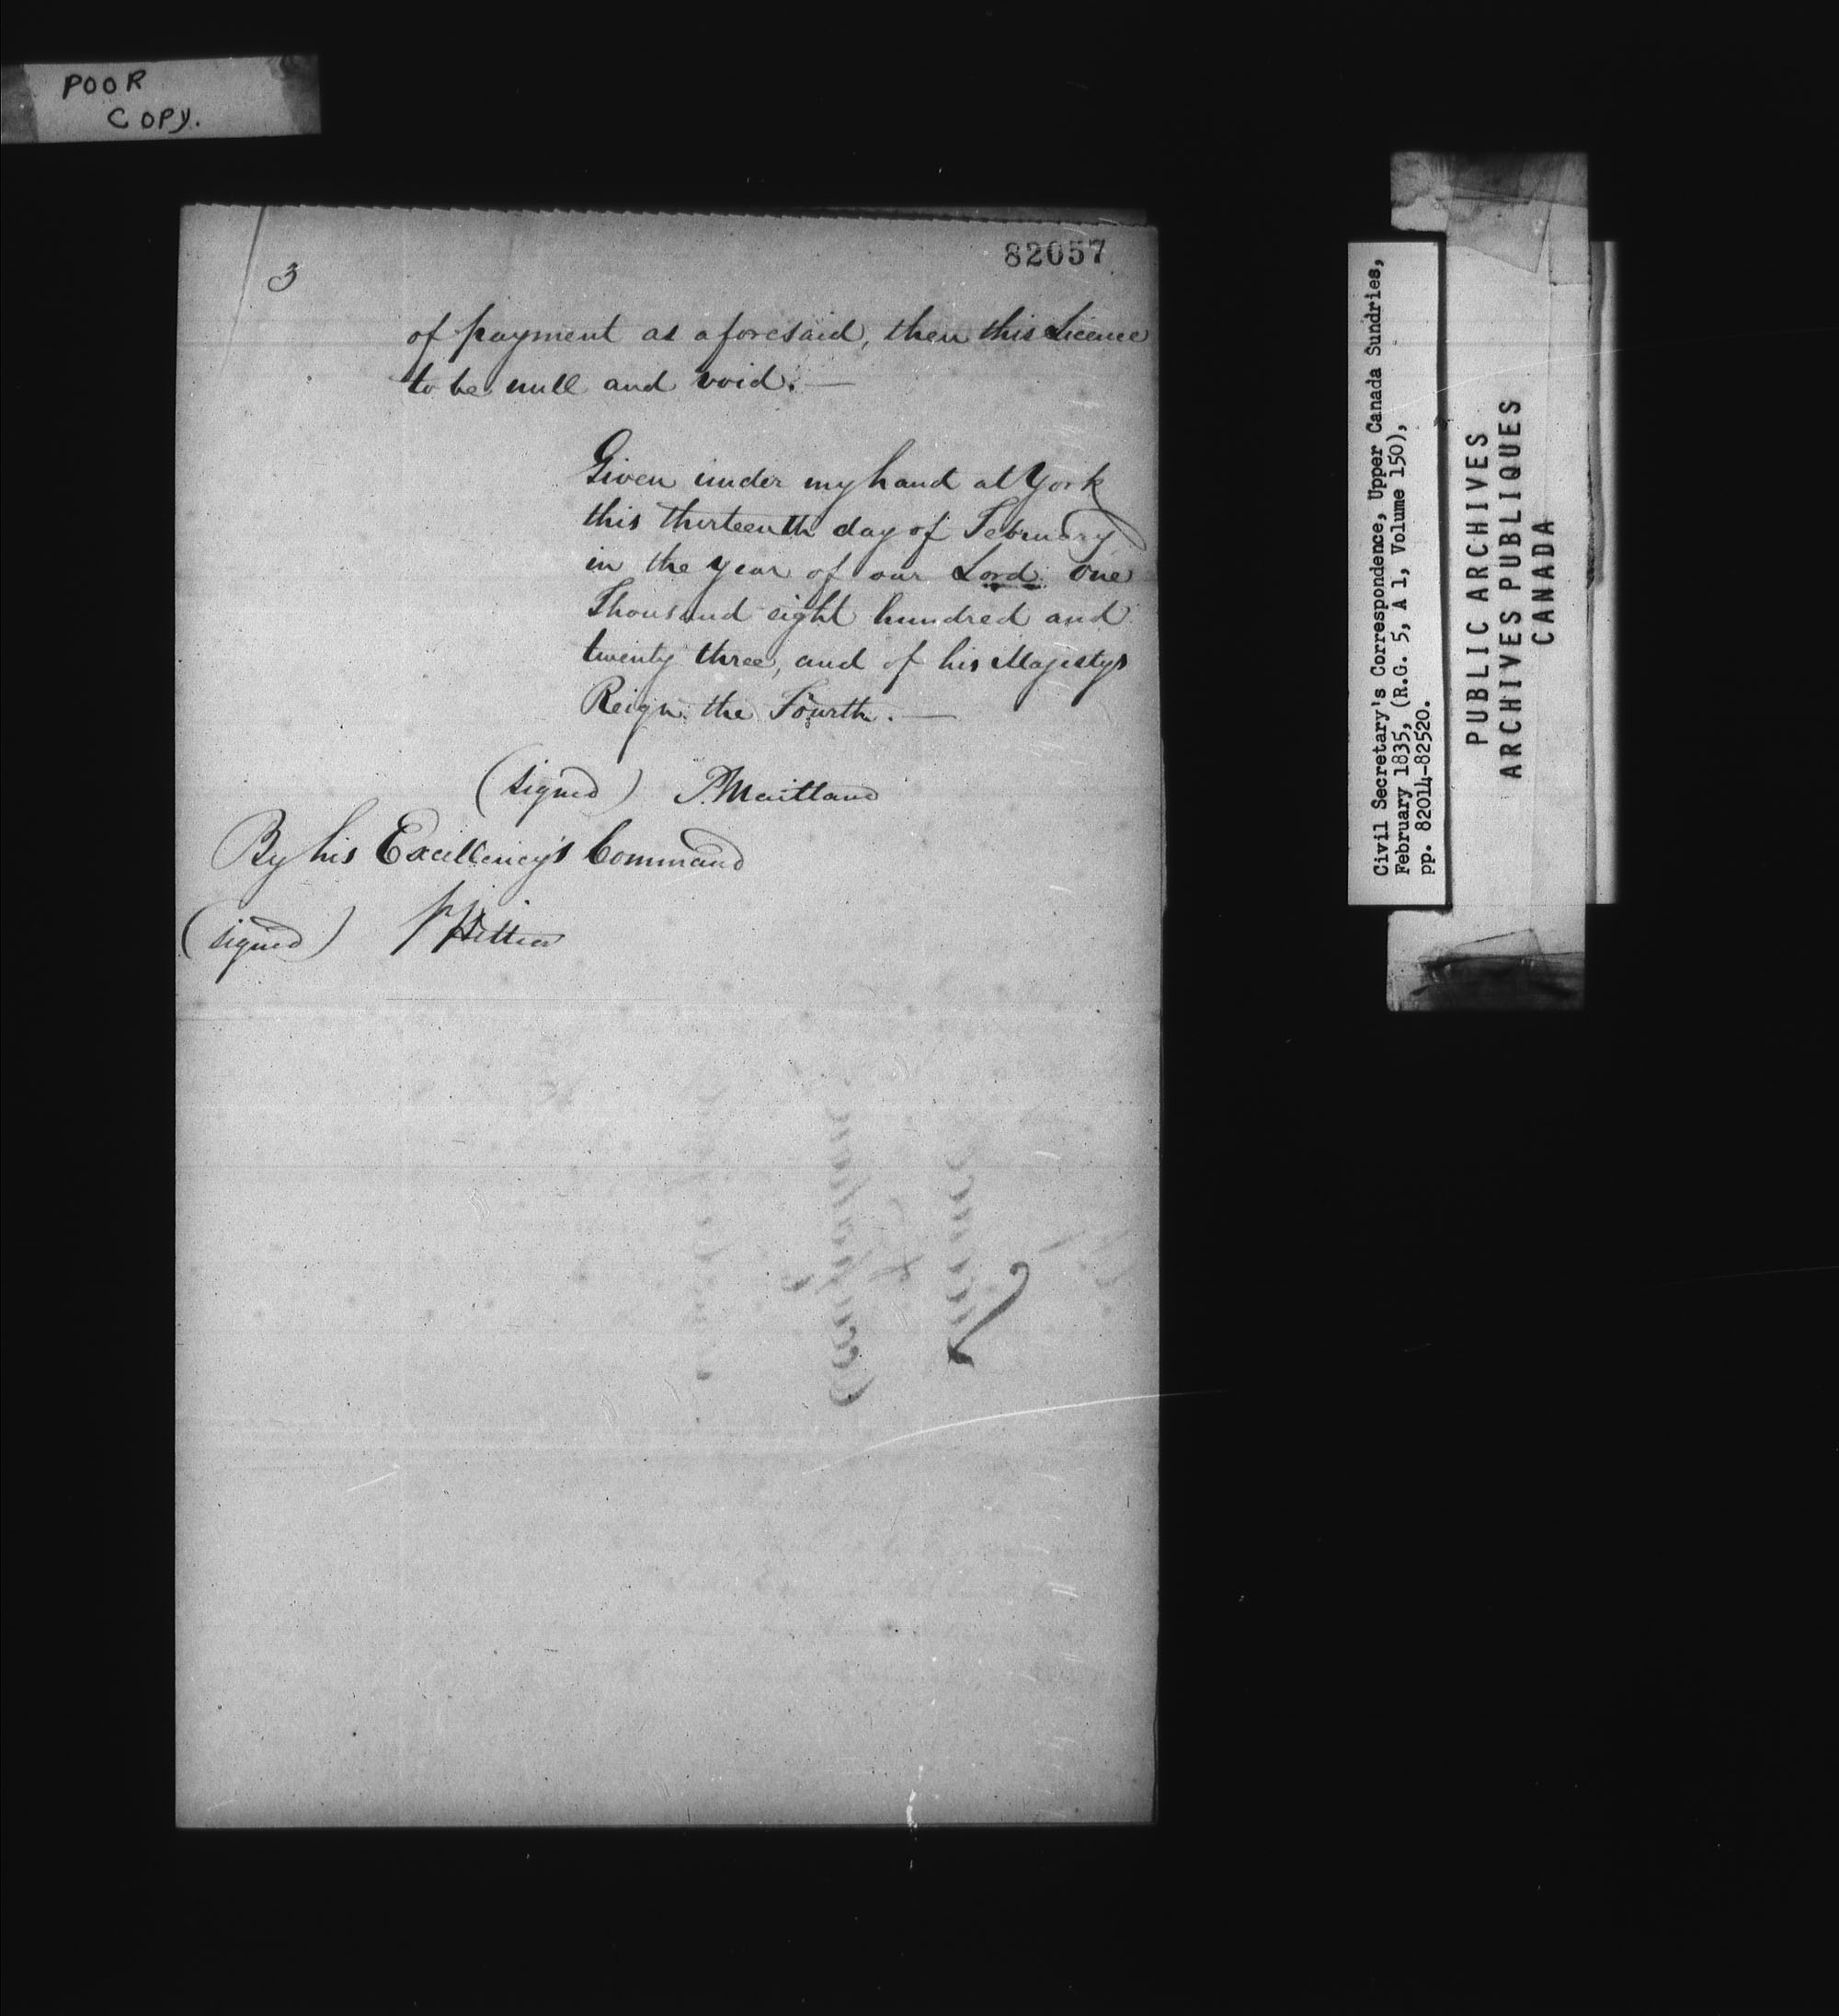 POOR
COPY.
82057
3
of payment as aforesaid, then this Licence
to be null and void. —
Given under my hand at York
this thirteenth day of February
in the year of our Lord one
Thousand eight hundred and
twenty three, and of his Majestys
Reign the Fourth. —
(signed) P. Maitland
By his Excellency's Command
(signed)
Civil Secretary's Correspondence, Upper Canada Sundries,
February 1835, (R.G. 5, A 1, Volume 150),
pp. 82014-82520.
PUBLIC ARCHIVES
ARCHIVES PUBLIQUES
CANADA